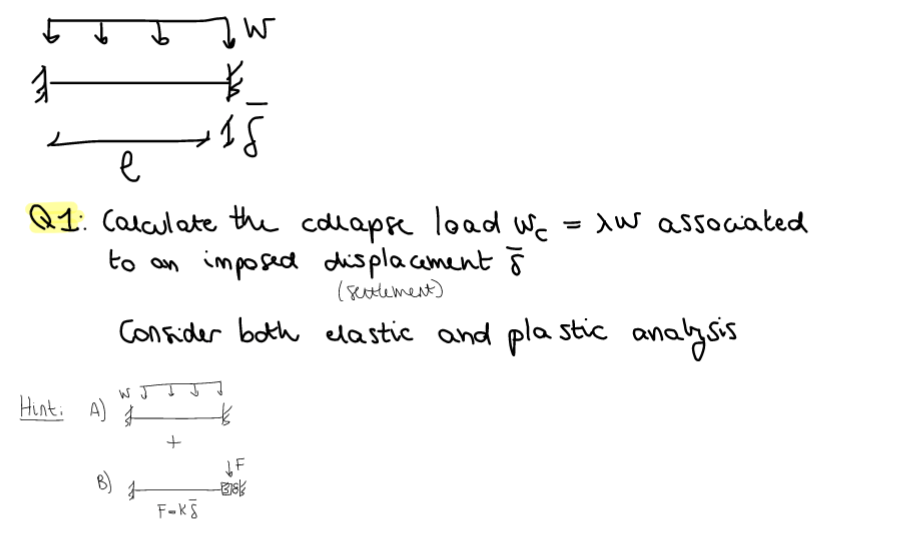 W
δ̄
ℓ
Q1: Calculate the collapse load w_c = λw associated
to an imposed displacement δ̄
(settlement)
Consider both elastic and plastic analysis
Hint: A) W
+
B) F
F=Kδ̄